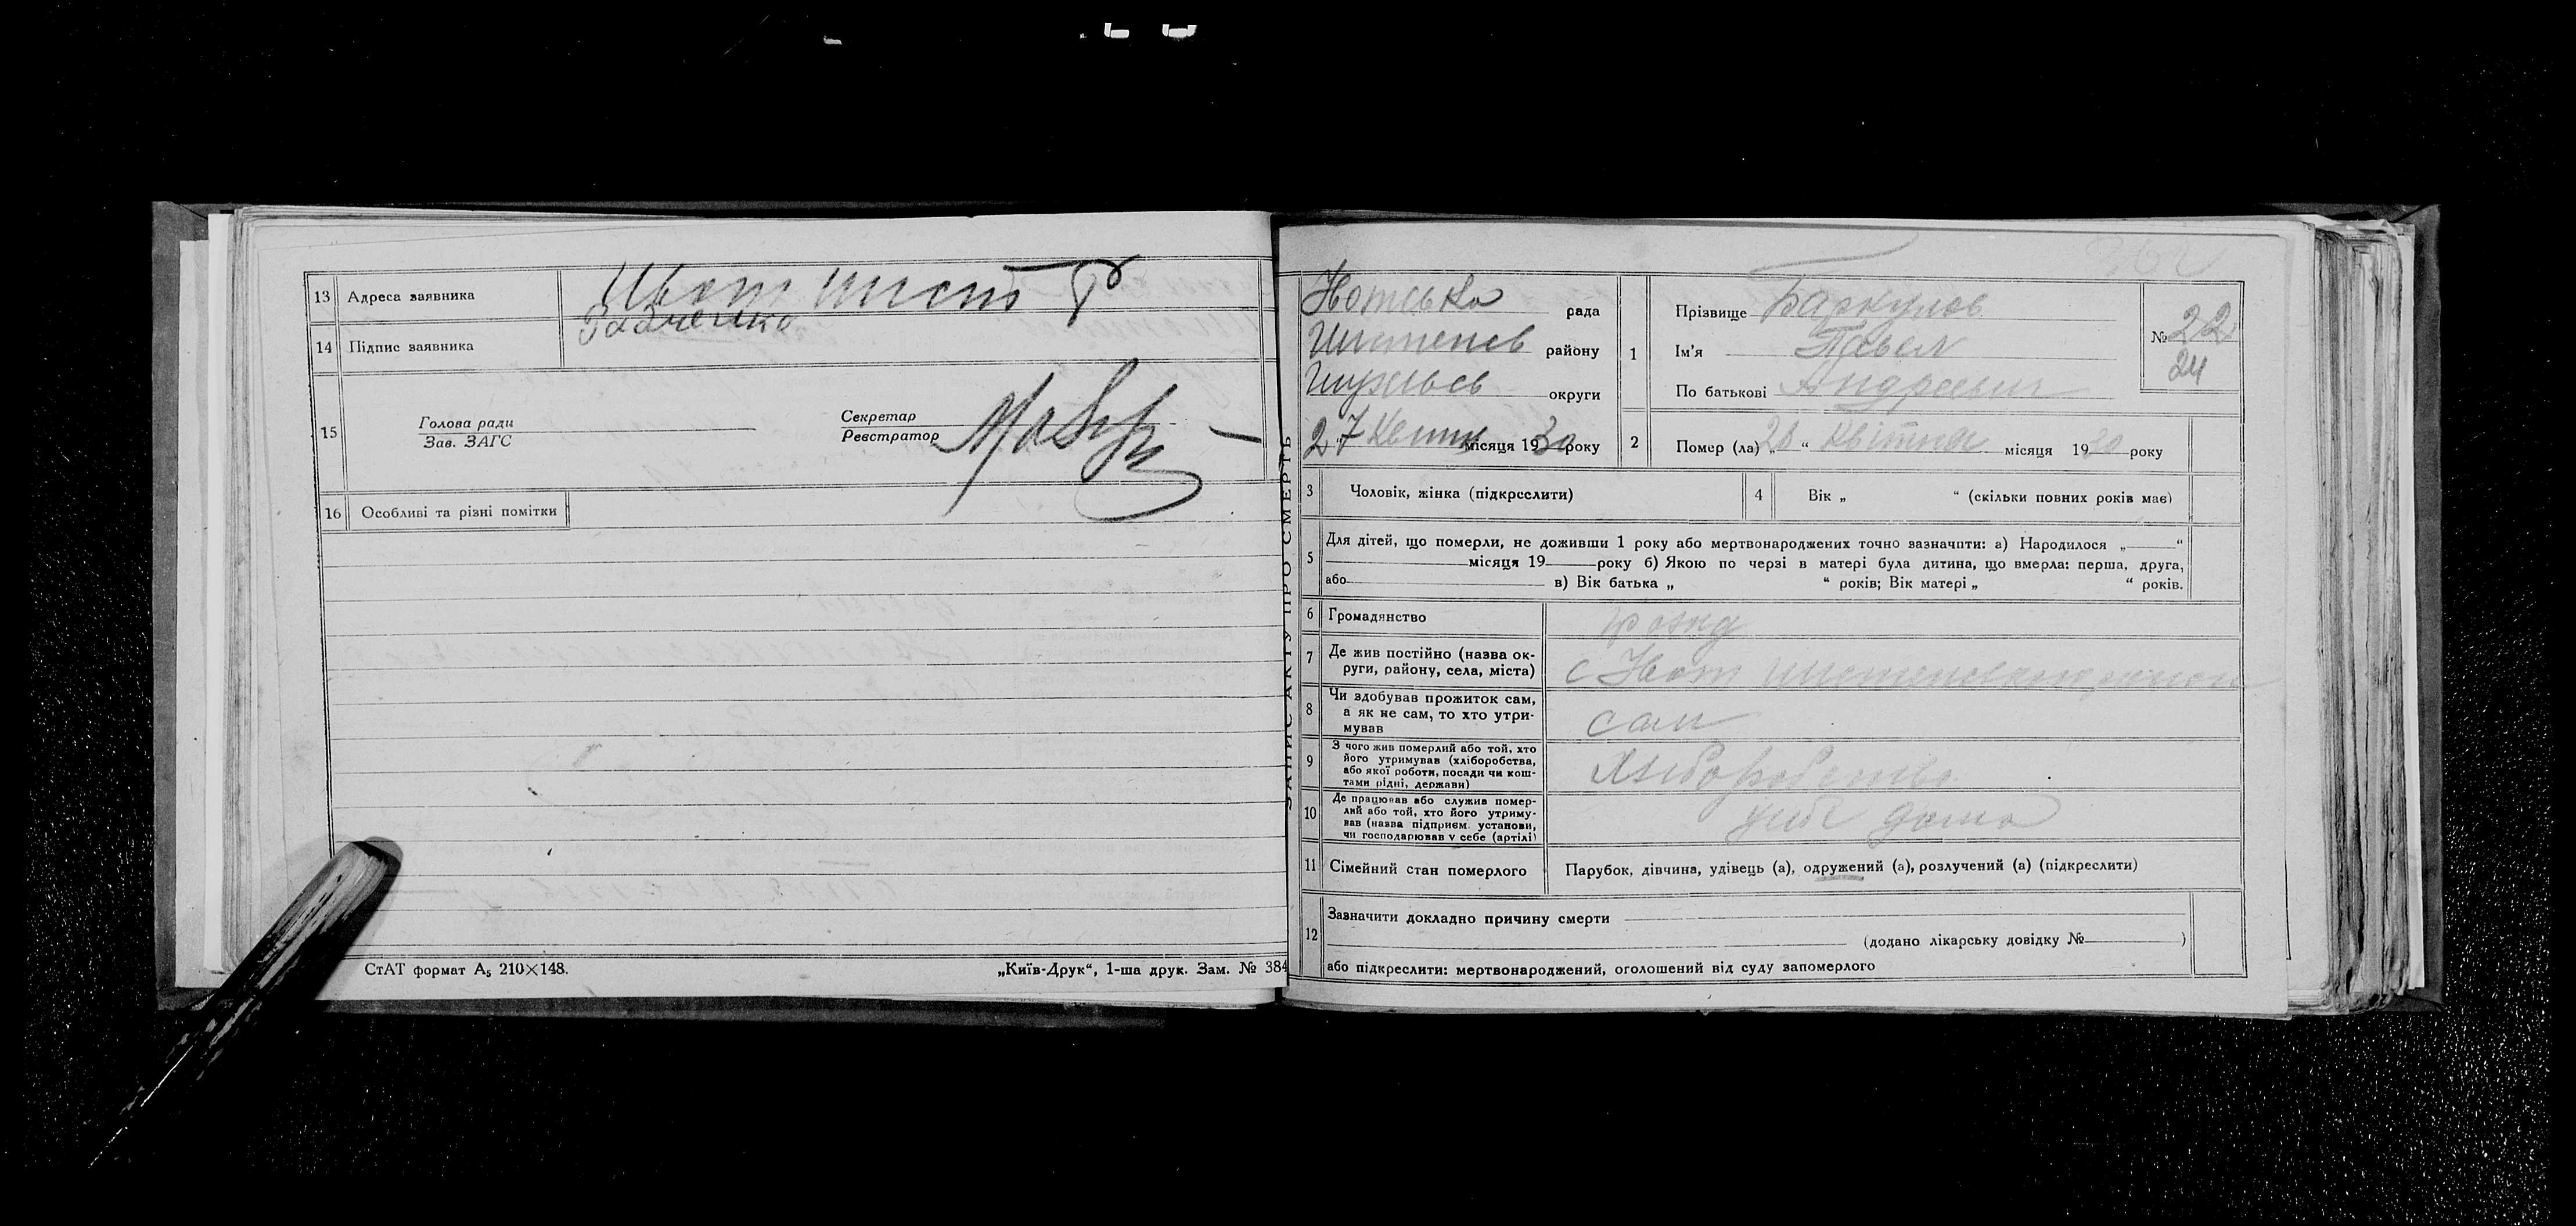 13 Адреса заявника
14 Підпис заявника
15 Голова ради
Зав. ЗАГС
Секретар
Реєстратор
16 Особливі та різні помітки
СтАТ формат А5 210×148.
„Київ-Друк“, 1-ша друк. Зам. № 384
ЗАПИС АКТУ ПРО СМЕРТЬ
рада
району
округи
27 Квітн місяця 1930 року
1 Прізвище Баркулов
Ім'я Павел
По батькові Андреевич
№ 22
24
2 Помер (ла) „ “ Квітня місяця 1930 року
3 Чоловік, жінка (підкреслити)
4 Вік „ “ (скільки повних років має)
5 Для дітей, що померли, не доживши 1 року або мертвонароджених точно зазначити: а) Народилося „ “
місяця 19 року б) Якою по черзі в матері була дитина, що вмерла: перша, друга,
або в) Вік батька „ “ років; Вік матері „ “ років.
6 Громадянство
7 Де жив постійно (назва ок-
руги, району, села, міста)
с
8 Чи здобував прожиток сам,
а як не сам, то хто утри-
мував
сам
9 З чого жив померлий або той, хто
його утримував (хліборобства,
або якої роботи, посади чи кош-
тами рідні, держави)
Хлиборобство
10 Де працював або служив помер-
лий або той, хто його утриму-
вав (назва підприєм. установи,
чи господарював у себе (артілі)
дома
11 Сімейний стан померлого
Парубок, дівчина, удівець (а), одружений (а), розлучений (а) (підкреслити)
12 Зазначити докладно причину смерти
(додано лікарську довідку № )
або підкреслити: мертвонароджений, оголошений від суду запомерлого